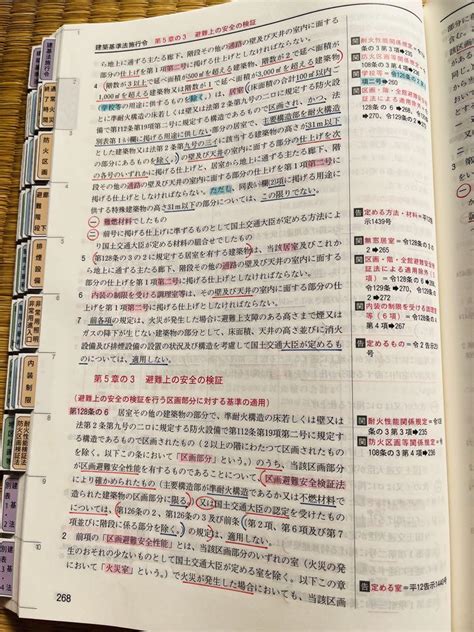 建築基準法施行令 第5章の3 避難上の安全の検証
ら地上に通ずる主たる廊下、階段その他の通路の壁及び天井の室内に面する
部分の仕上げを第1項第二号に掲げる仕上げとしなければならない。
4 階数が3以上で延べ面積が500㎡を超える建築物、階数が2で延べ面積が
1,000㎡を超える建築物又は階数が1で延べ面積が3,000㎡を超える建築物
(学校等の用途に供するものを除く。)は、居室(床面積の合計100㎡以内ご
とに準耐火構造の床若しくは壁又は法第2条第九号の二ロに規定する防火設
備で第112条第19項第二号に規定する構造であるもので区画され、かつ、法
別表第1(い)欄に掲げる用途に供しない部分の居室で、主要構造部を耐火構造
とした建築物又は法第2条第九号の三イに該当する建築物の高さが31m以下
の部分にあるものを除く。)の壁及び天井の室内に面する部分の仕上げを次
の各号のいずれかに掲げる仕上げと、居室から地上に通ずる主たる廊下、階
段その他の通路の壁及び天井の室内に面する部分の仕上げを第1項第二号に
掲げる仕上げとしなければならない。ただし、同表(い)欄(2)項に掲げる用途に
供する特殊建築物の高さ31m以下の部分については、この限りでない。
一 難燃材料でしたもの
二 前号に掲げる仕上げに準ずるものとして国土交通大臣が定める方法によ
り国土交通大臣が定める材料の組合せでしたもの
5 第128条の3の2に規定する居室を有する建築物は、当該居室及びこれか
ら地上に通ずる主たる廊下、階段その他の通路の壁及び天井の室内に面する
部分の仕上げを第1項第二号に掲げる仕上げとしなければならない。
6 内装の制限を受ける調理室等は、その壁及び天井の室内に面する部分の仕
上げを第1項第二号に掲げる仕上げとしなければならない。
7 前各項の規定は、火災が発生した場合に避難上支障のある高さまで煙又は
ガスの降下が生じない建築物の部分として、床面積、天井の高さ並びに消火
設備及び排煙設備の設置の状況及び構造を考慮して国土交通大臣が定めるも
のについては、適用しない。
第5章の3 避難上の安全の検証
(避難上の安全の検証を行う区画部分に対する基準の適用)
第128条の6 居室その他の建築物の部分で、準耐火構造の床若しくは壁又は
法第2条第九号の二ロに規定する防火設備で第112条第19項第二号に規定す
る構造であるもので区画されたもの(2以上の階にわたつて区画されたもの
を除く。以下この条において「区画部分」という。)のうち、当該区画部分
が区画避難安全性能を有するものであることについて、区画避難安全検証法
により確かめられたもの(主要構造部が準耐火構造であるか又は不燃材料で
造られた建築物の区画部分に限る。)又は国土交通大臣の認定を受けたもの
については、第126条の2、第126条の3及び前条(第2項、第6項及び第7
項並びに階段に係る部分を除く。)の規定は、適用しない。
2 前項の「区画避難安全性能」とは、当該区画部分のいずれの室(火災の発
生のおそれの少ないものとして国土交通大臣が定める室を除く。以下この章
において「火災室」という。)で火災が発生した場合においても、当該区画
268
関 耐火性能関係規定=令108
条の3 第3項→235
関 定める方法・材料=平12告
示1439号
関 無窓居室=令128条の3の
2→265
関 内装の制限を受ける調理室
等
告 定めるもの=令2告示251
号
関 耐火性能関係規定=令108
条の3 第3項→235
関 防火区画等関係規定=令
108条の3 第4項→235
告 定める室=平12告示1440号
防火区画
排煙設備
内装制限